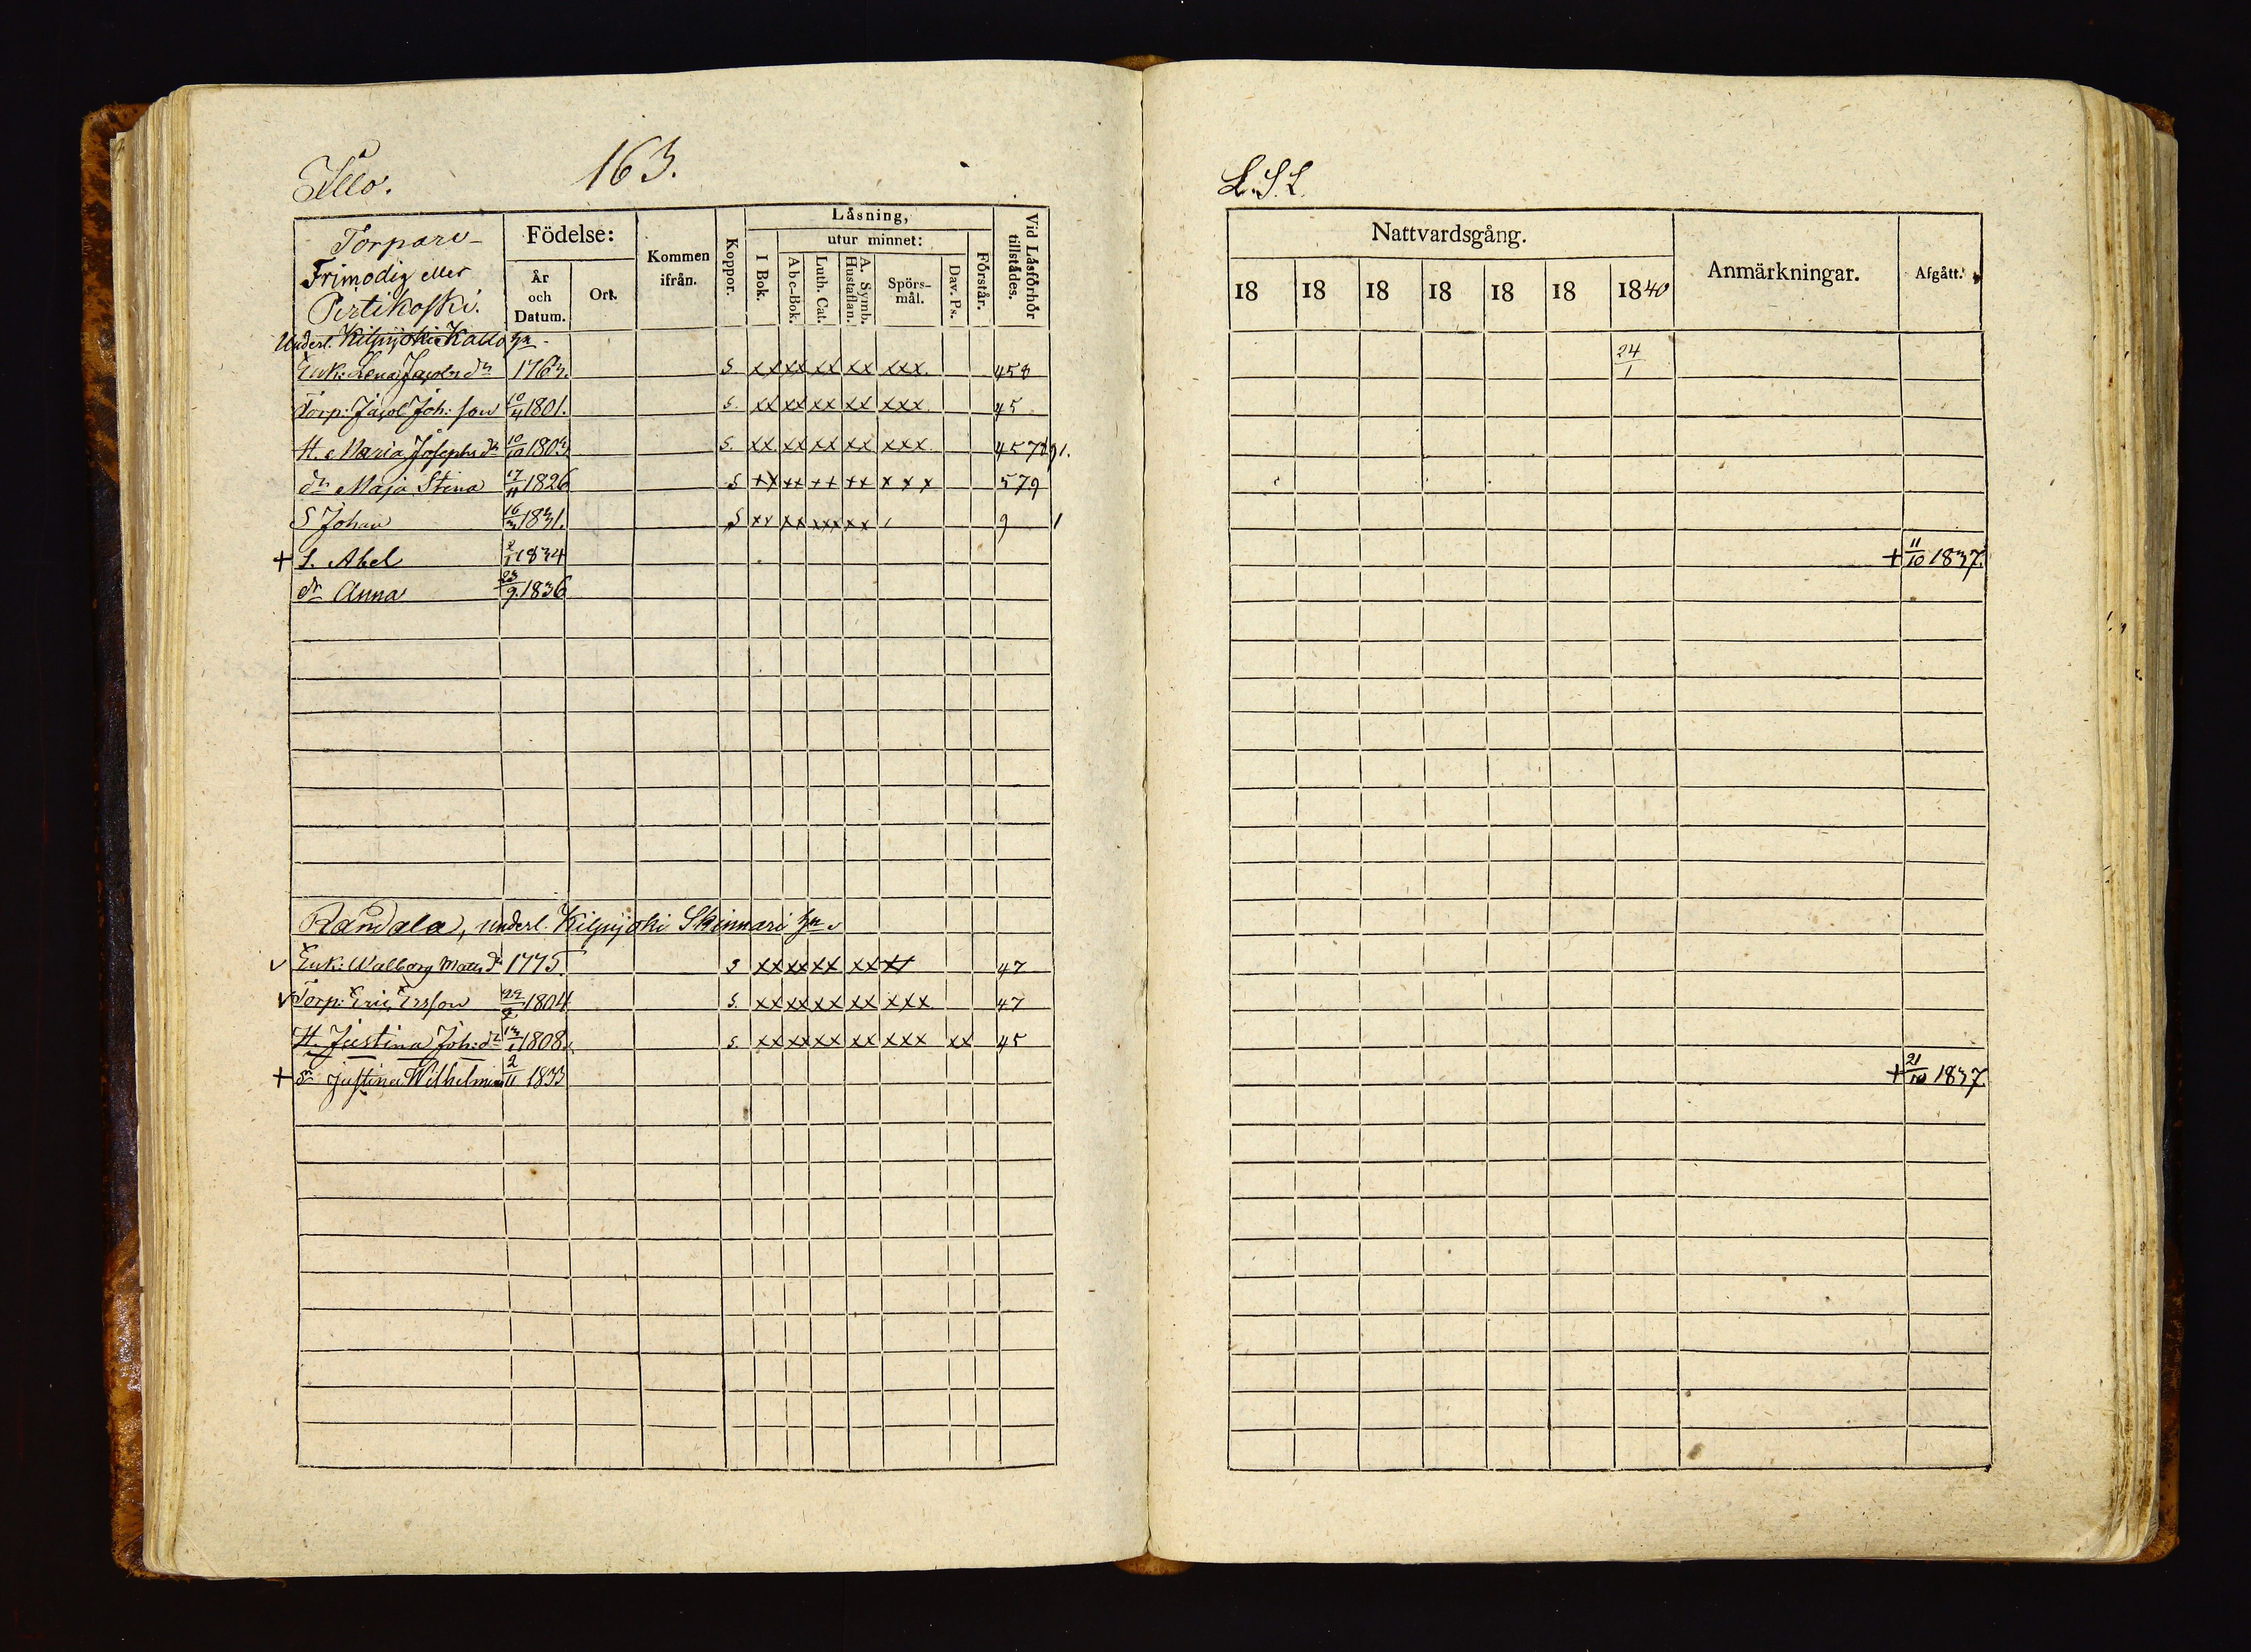 Illo.
163.
Torpare
Frimodig eller
Pertikoski.
Födelse:
År och Datum.
Ort.
Kommen ifrån.
Koppor.
Läsning,
I Bok.
utur minnet:
Abc-Bok.
Luth. Cat.
A. Symb. Hustaflan.
Spörs-mål.
Dav. Ps.
Förstår.
Vid Läsförhör tillstådes.
Underl. Kilpijoki Kallo
Enk: Lena Jacobs dr 1763. S xx xx xx xx xxx. 458
Torp: Jacob Joh: son 10/4 1801. S. xx xx xx xx xxx. 45
H. Maria Josephs dr 10/10 1803 S. xx. xx xx xx xxx. 457891.
dr Maja Stina 17/11 1826 S xx xx xx xx x x x 579
S Johan 16/3 1831. S xx xx xxx xx / 9 1
+ S. Abel 1834
dr Anna 23/9 1836
Randala, underl. Kilpijoki Skinnari
v Enk: Walborg Matts dr 1775. S xx xx xx xx xx 47
v Torp: Eric Ersson 29/2 1804 S. xx xx xx xx xxx. 47
H. Justina Joh: dr 13/1 1808. S. xx xx xx xx xxx xx 45
+ dr Justina Wilhelmina 2/11 1833
L.S.L.
Nattvardsgång.
Anmärkningar.
Afgått.
18 18 18 18 18 18 1840
24/1
+ 11/10 1837.
+ 21/10 1837.